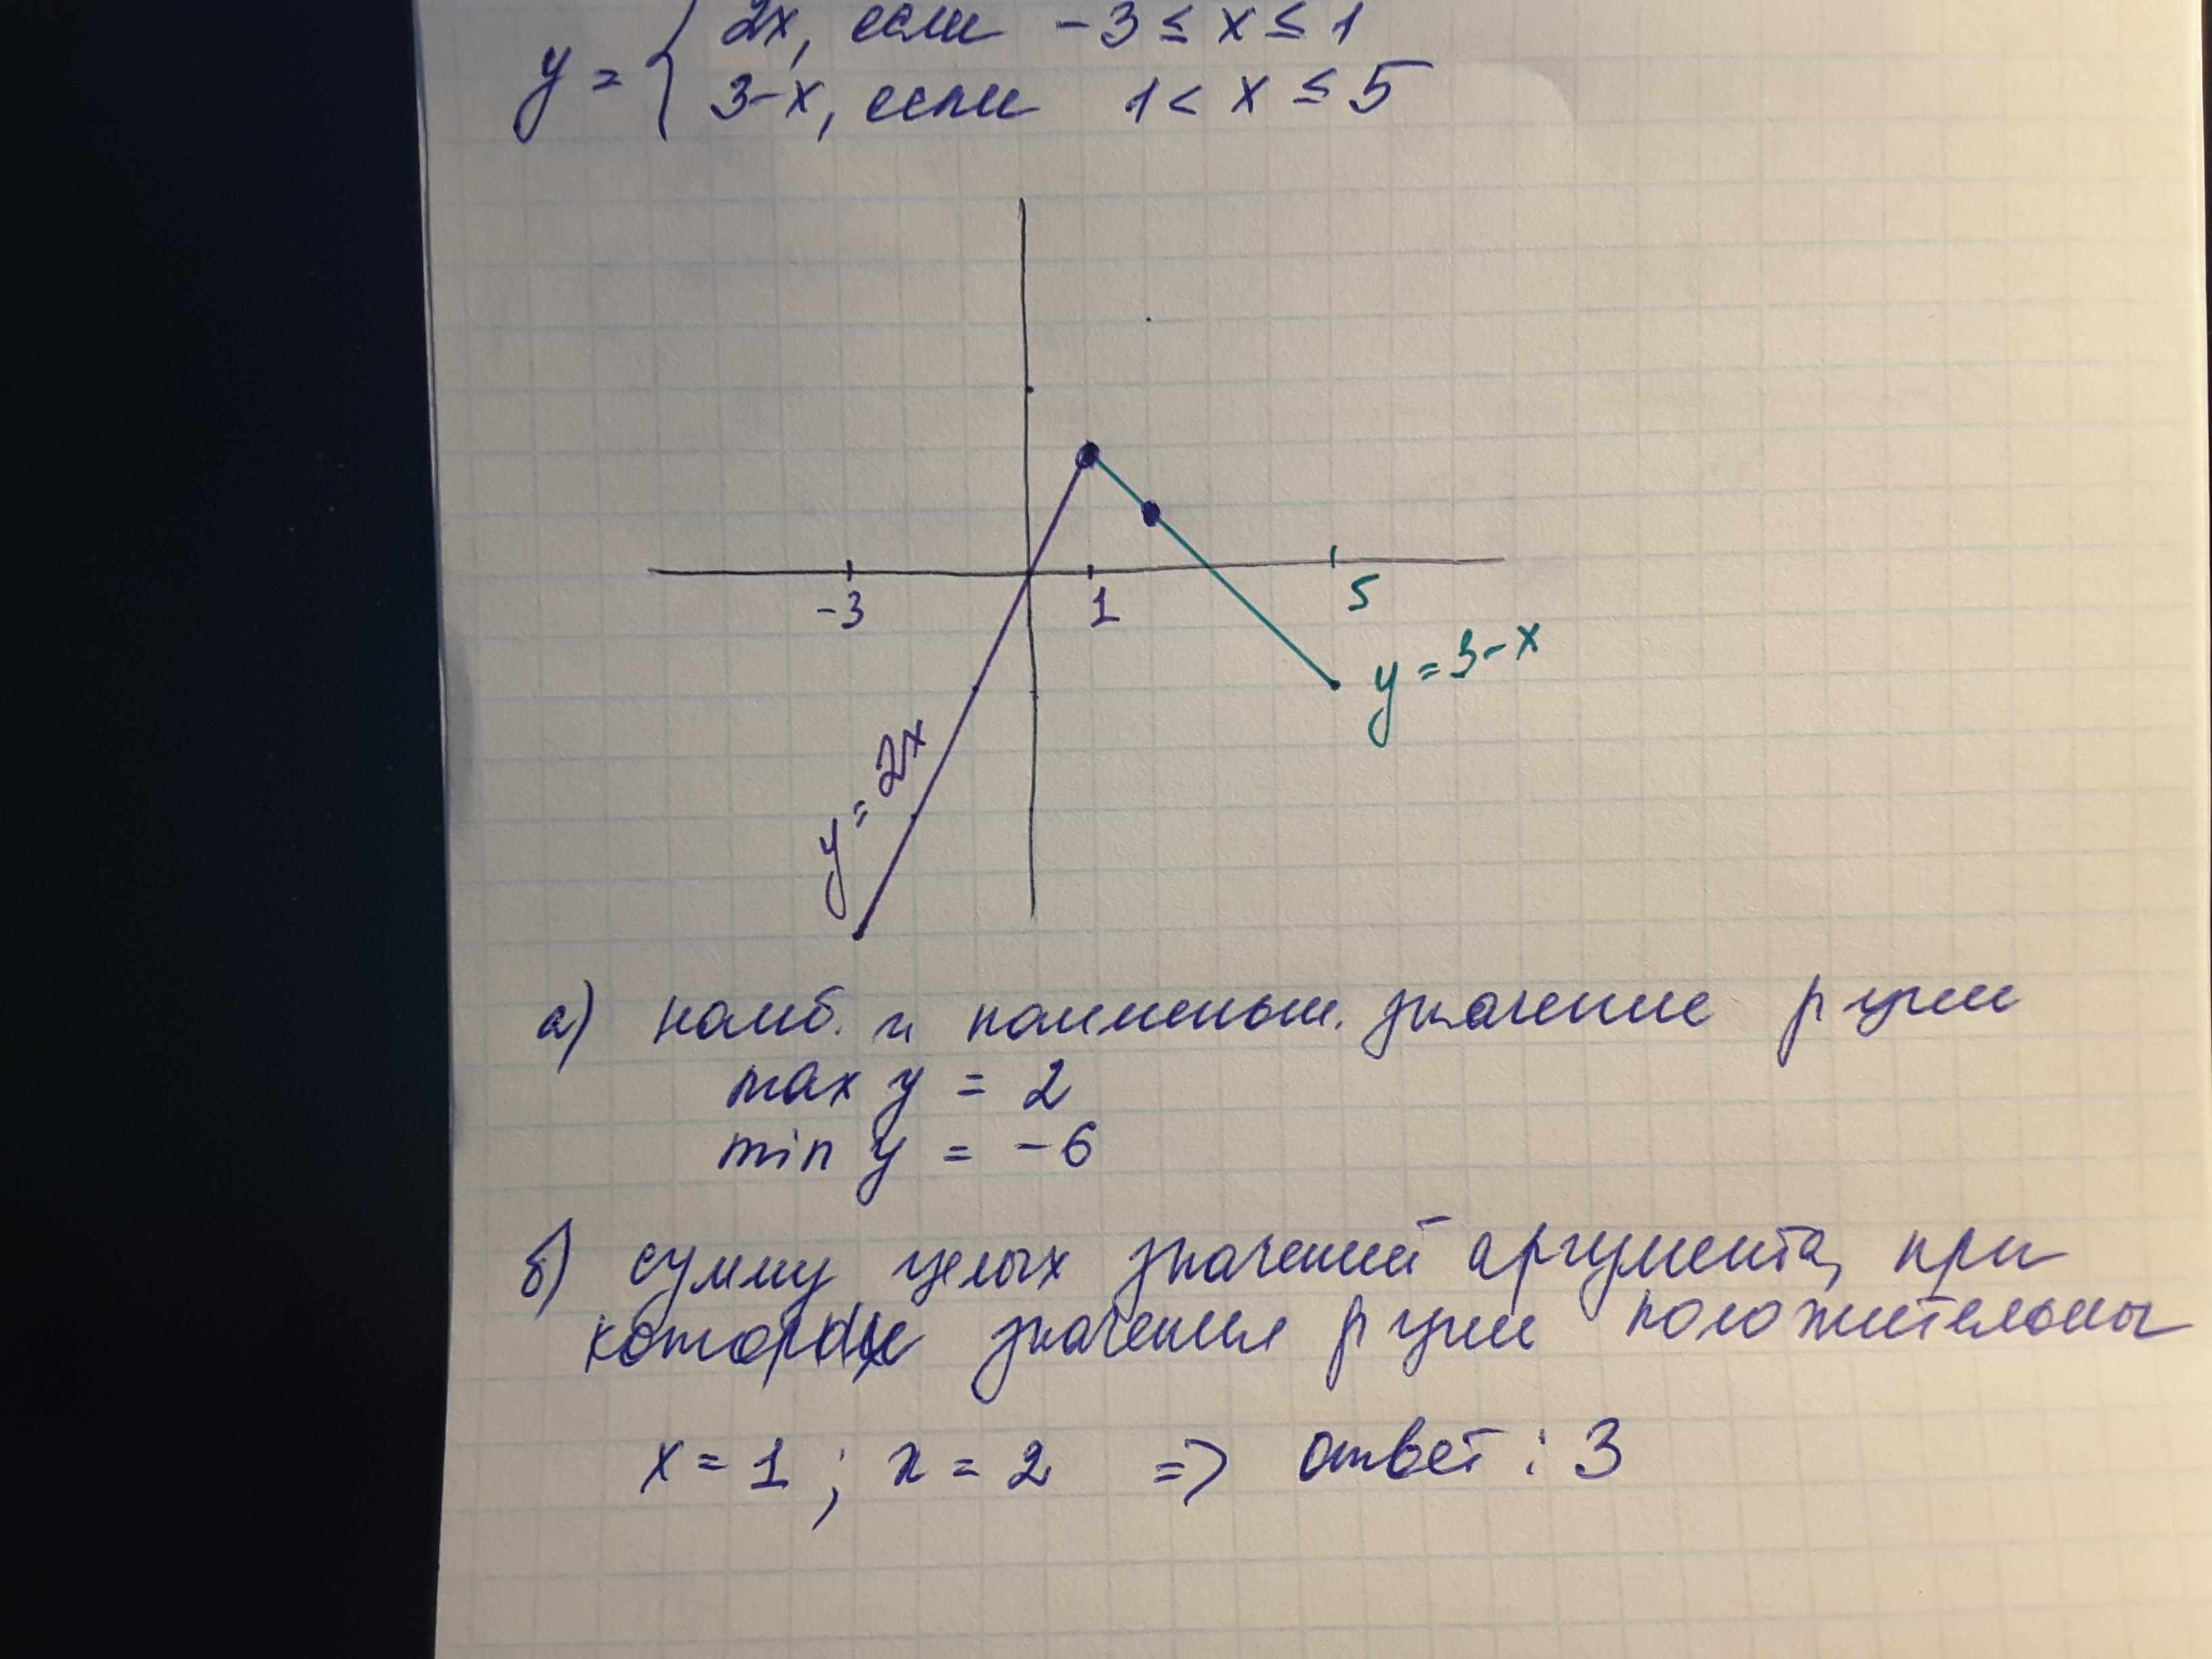 y = { 2x, если -3 ≤ x ≤ 1
3-x, если 1 < x ≤ 5
-3
1
5
y = 3-x
y = 2x
а) наиб. и наименьш. значение р-ции
max y = 2
min y = -6
б) сумму целых значений аргумента, при
которых значения р-ции положительны
x = 1 ; x = 2 => ответ : 3